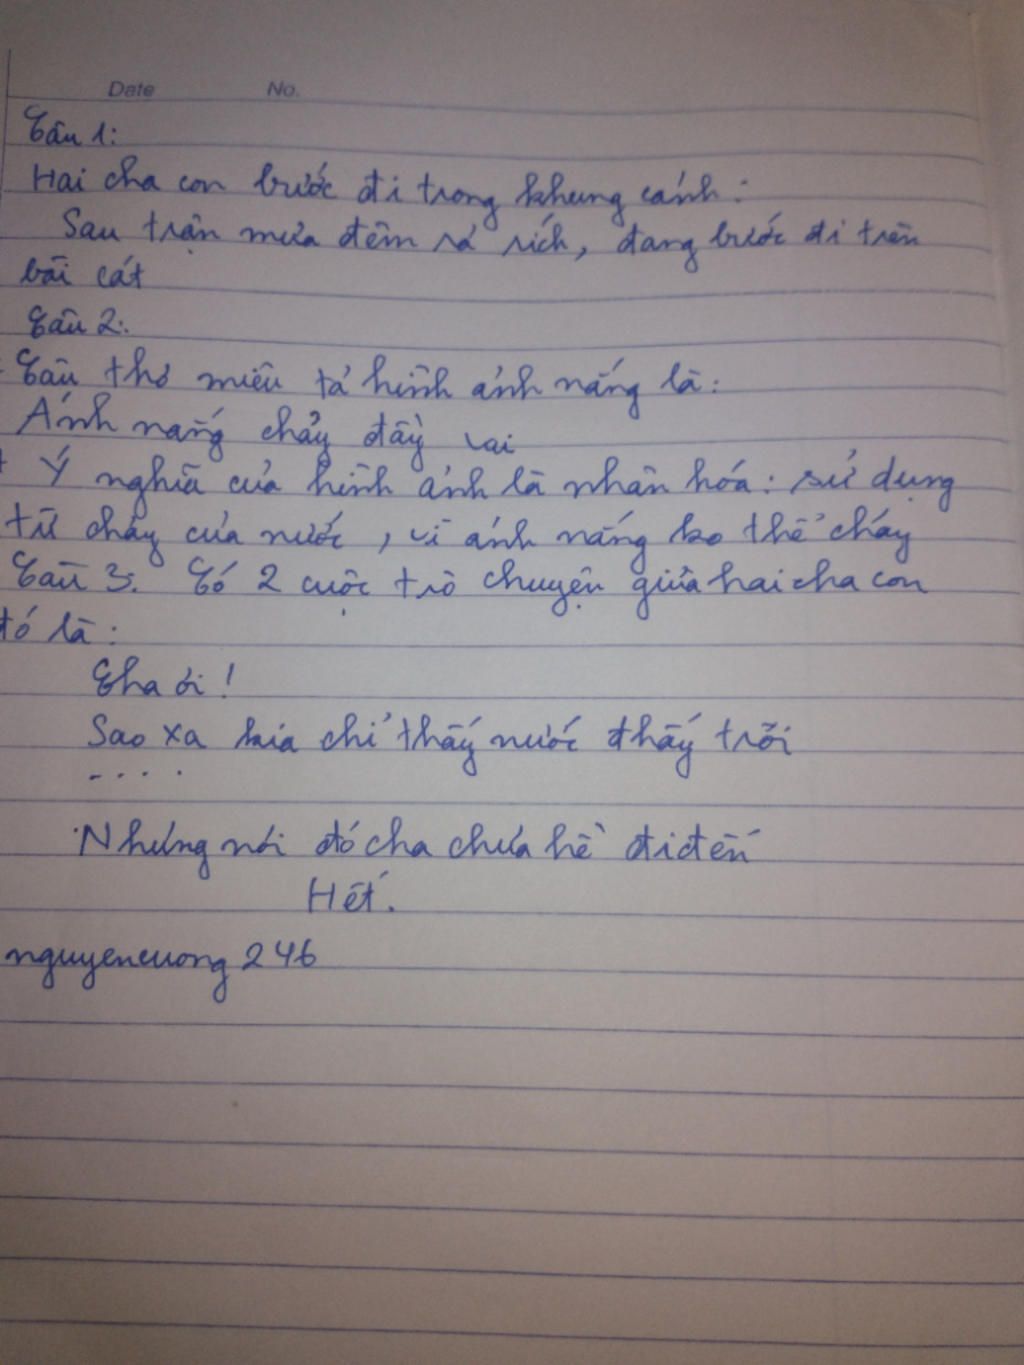 Date No.
Câu 1:
Hai cha con bước đi trong khung cảnh:
Sau trận mưa đêm rả rích, đang bước đi trên
bãi cát
Câu 2:
Câu thơ miêu tả hình ảnh nắng là:
Ánh nắng chảy đầy vai
+ Ý nghĩa của hình ảnh là nhân hóa: sử dụng
từ chảy của nước, vì ánh nắng ko thể chảy
Câu 3: Có 2 cuộc trò chuyện giữa hai cha con
đó là:
Cha ơi!
Sao xa kia chỉ thấy nước thấy trời
- . . .
Nhưng nơi đó cha chưa hề đi đến
Hết.
nguyencuong246